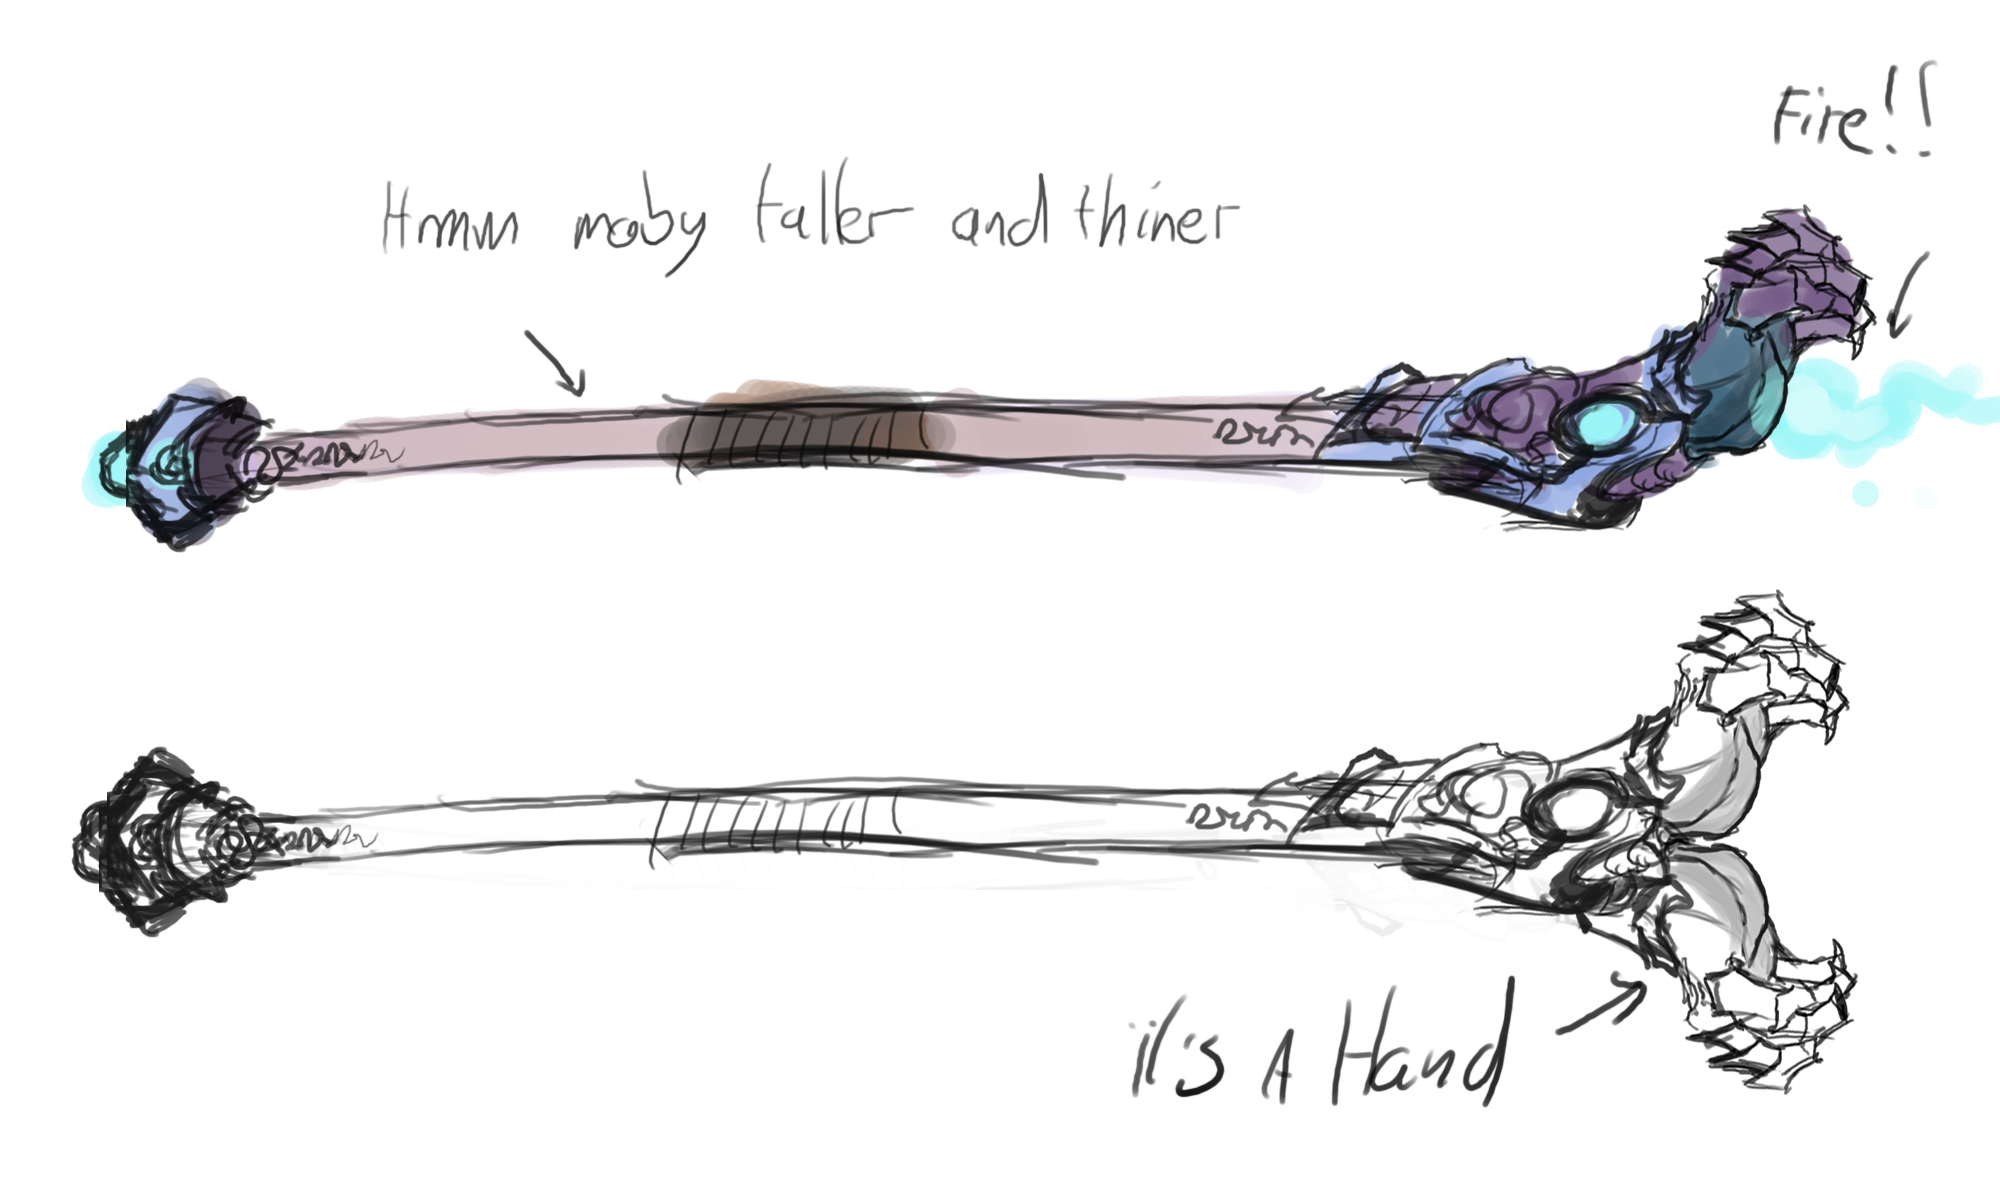 Fire!!
Hmmm moby taller and thiner
it's A Hand